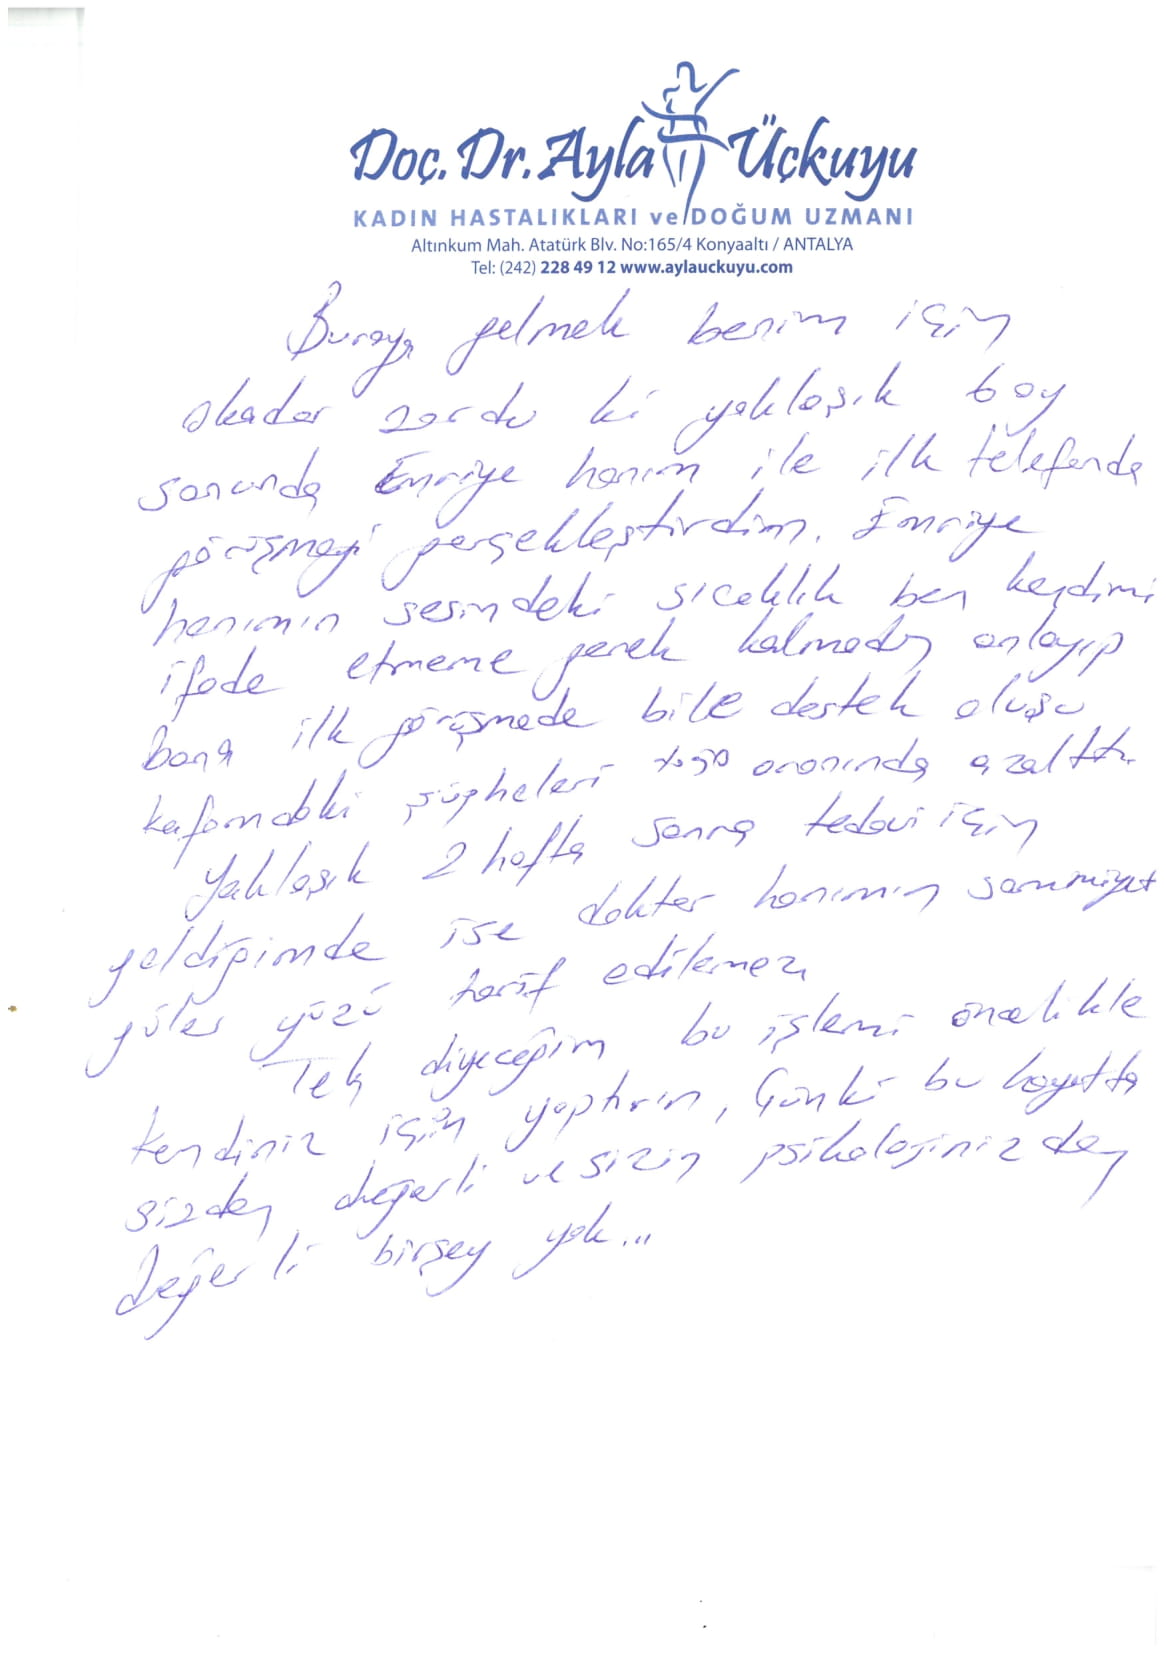 Doç. Dr. Ayla Üçkuyu
KADIN HASTALIKLARI ve DOĞUM UZMANI
Altınkum Mah. Atatürk Blv. No:165/4 Konyaaltı / ANTALYA
Tel: (242) 228 49 12 www.aylauckuyu.com
Buraya gelmek benim için
okadar zordu ki yaklaşık 6 ay
sonunda Emriye hanım ile ilk telefonda
görüşmeyi gerçekleştirdim. Emriye
hanımın sesindeki sıcaklık ben kendimi
ifade etmeme gerek kalmadan anlayıp
bana ilk görüşmede bile destek oluşu
kafamdaki şüpheleri %90 oranında azalttı.
Yaklaşık 2 hafta sonra tedavi için
geldiğimde ise doktor hanımın samimiyet
güler yüzü tarif edilemez.
Tek diyeceğim bu işlemi öncelikle
kendiniz için yaptırın, Çünki bu hayatta
sizden değerli ve sizin psikolojinizden
değerli birşey yok...